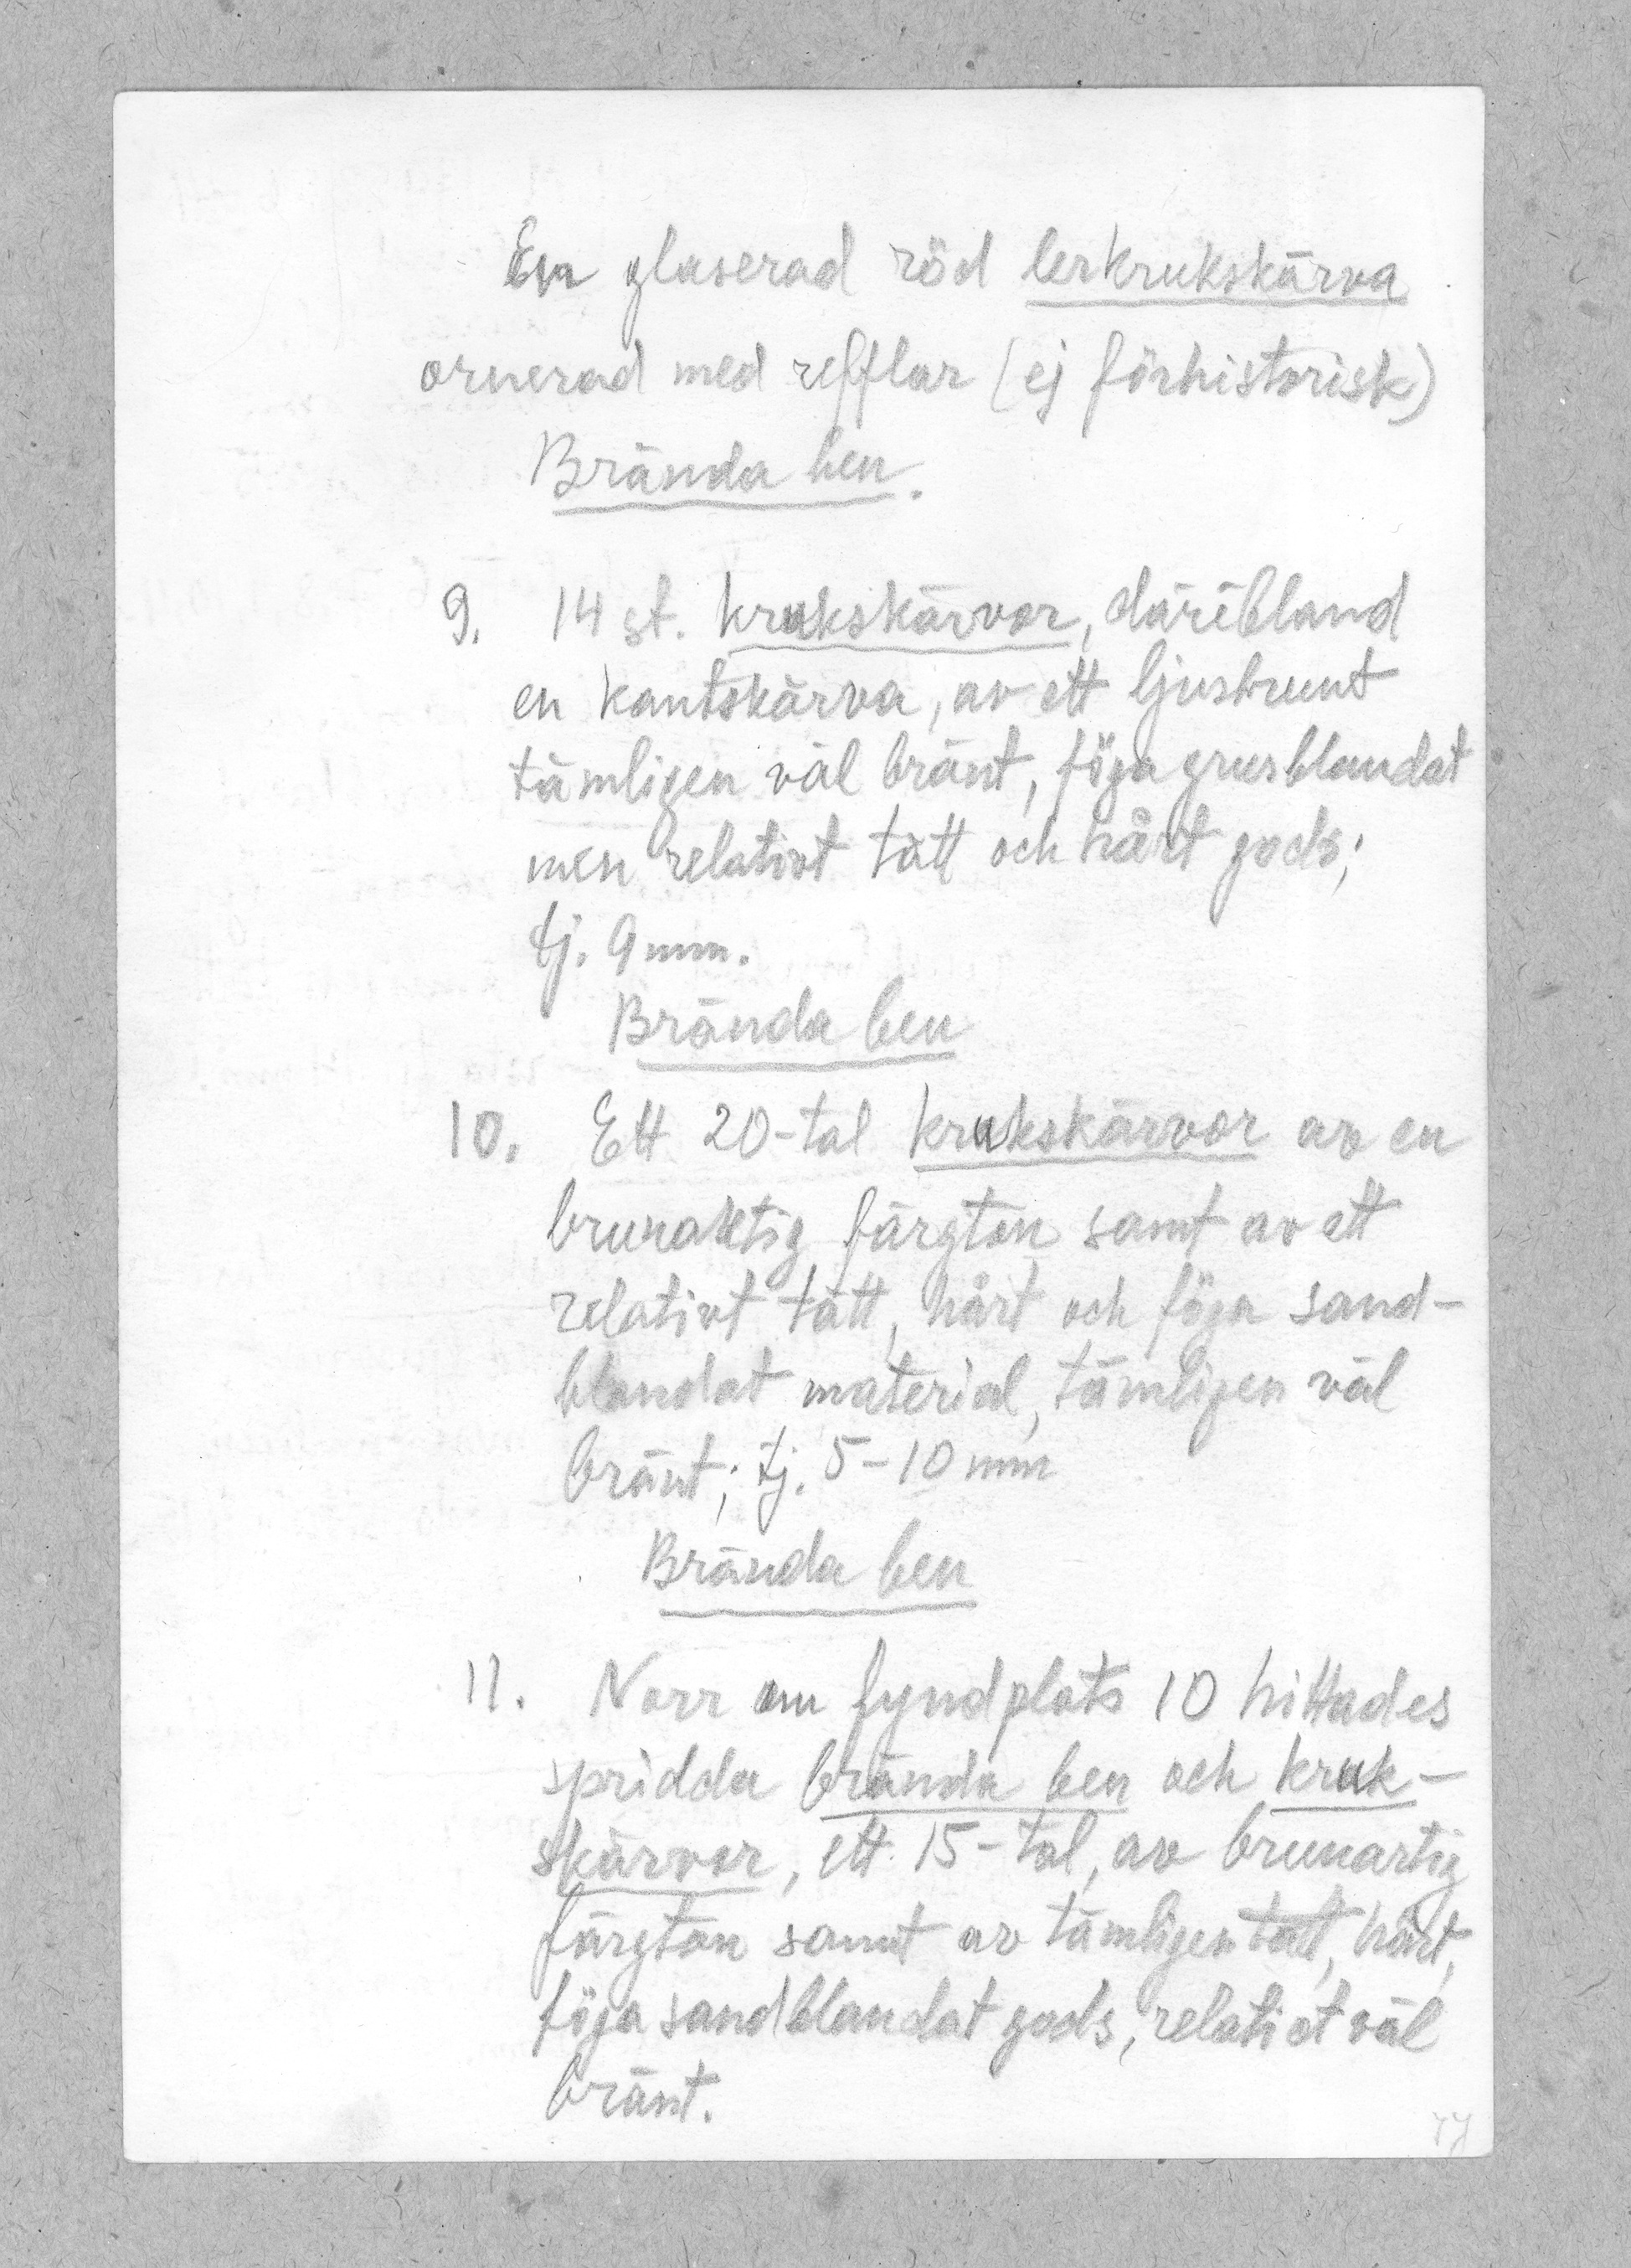 En glaserad röd lerkrukskärva
ornerad med refflar (ej förhistorisk)
Brända ben.
9. 14 st. krukskärvor, däribland
en kantskärva, av ett ljusbrunt
tämligen väl bränt, föga grusblandat
men relativt tätt och hårt gods;
tj. 9 mm.
Brända ben
10. Ett 20-tal krukskärvor av en
brunaktig färgton samt av ett
relativt tätt, hårt och föga sand-
blandat material, tämligen väl
bränt; tj. 5-10 mm
Brända ben
11. Norr om fyndplats 10 hittades
spridda brända ben och kruk-
skärvor, ett 15-tal, av brunartig
färgton samt av tämligen tätt, hårt,
föga sandblandat gods, relativt väl
bränt.